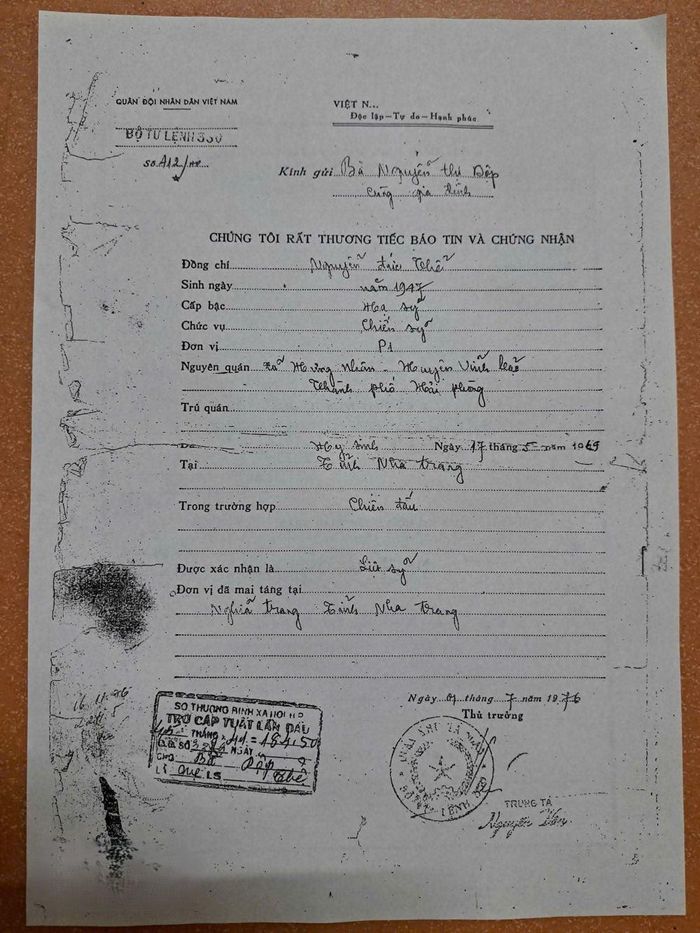 QUÂN ĐỘI NHÂN DÂN VIỆT NAM
BỘ TƯ LỆNH 350
SỐ A12/
VIỆT N...
Độc lập - Tự do - Hạnh phúc
Kính gửi Bà Nguyễn thị Dộp
Cùng gia đình
CHÚNG TÔI RẤT THƯƠNG TIẾC BÁO TIN VÀ CHỨNG NHẬN
Đồng chí Nguyễn đức Thể
Sinh ngày năm 1947
Cấp bậc Hạ sỹ
Chức vụ Chiến sỹ
Đơn vị P1
Nguyên quán Xã Hưng Nhân - Huyện Vĩnh bảo
Thành phố Hải phòng
Trú quán
Đã Hy sinh Ngày 17 tháng 5 năm 1969
Tại Tỉnh Nha trang
Trong trường hợp Chiến đấu
Được xác nhận là Liệt sỹ
Đơn vị đã mai táng tại
Nghĩa trang Tỉnh Nha trang
Ngày 01 tháng 7 năm 1976
Thủ trưởng
SỞ THƯƠNG BINH XÃ HỘI HP
TRỢ CẤP TUẤT LẦN ĐẦU
THÁNG
SỐ NGÀY
CHO Bà Dộp
LS Thể
TRUNG TÁ
Nguyễn